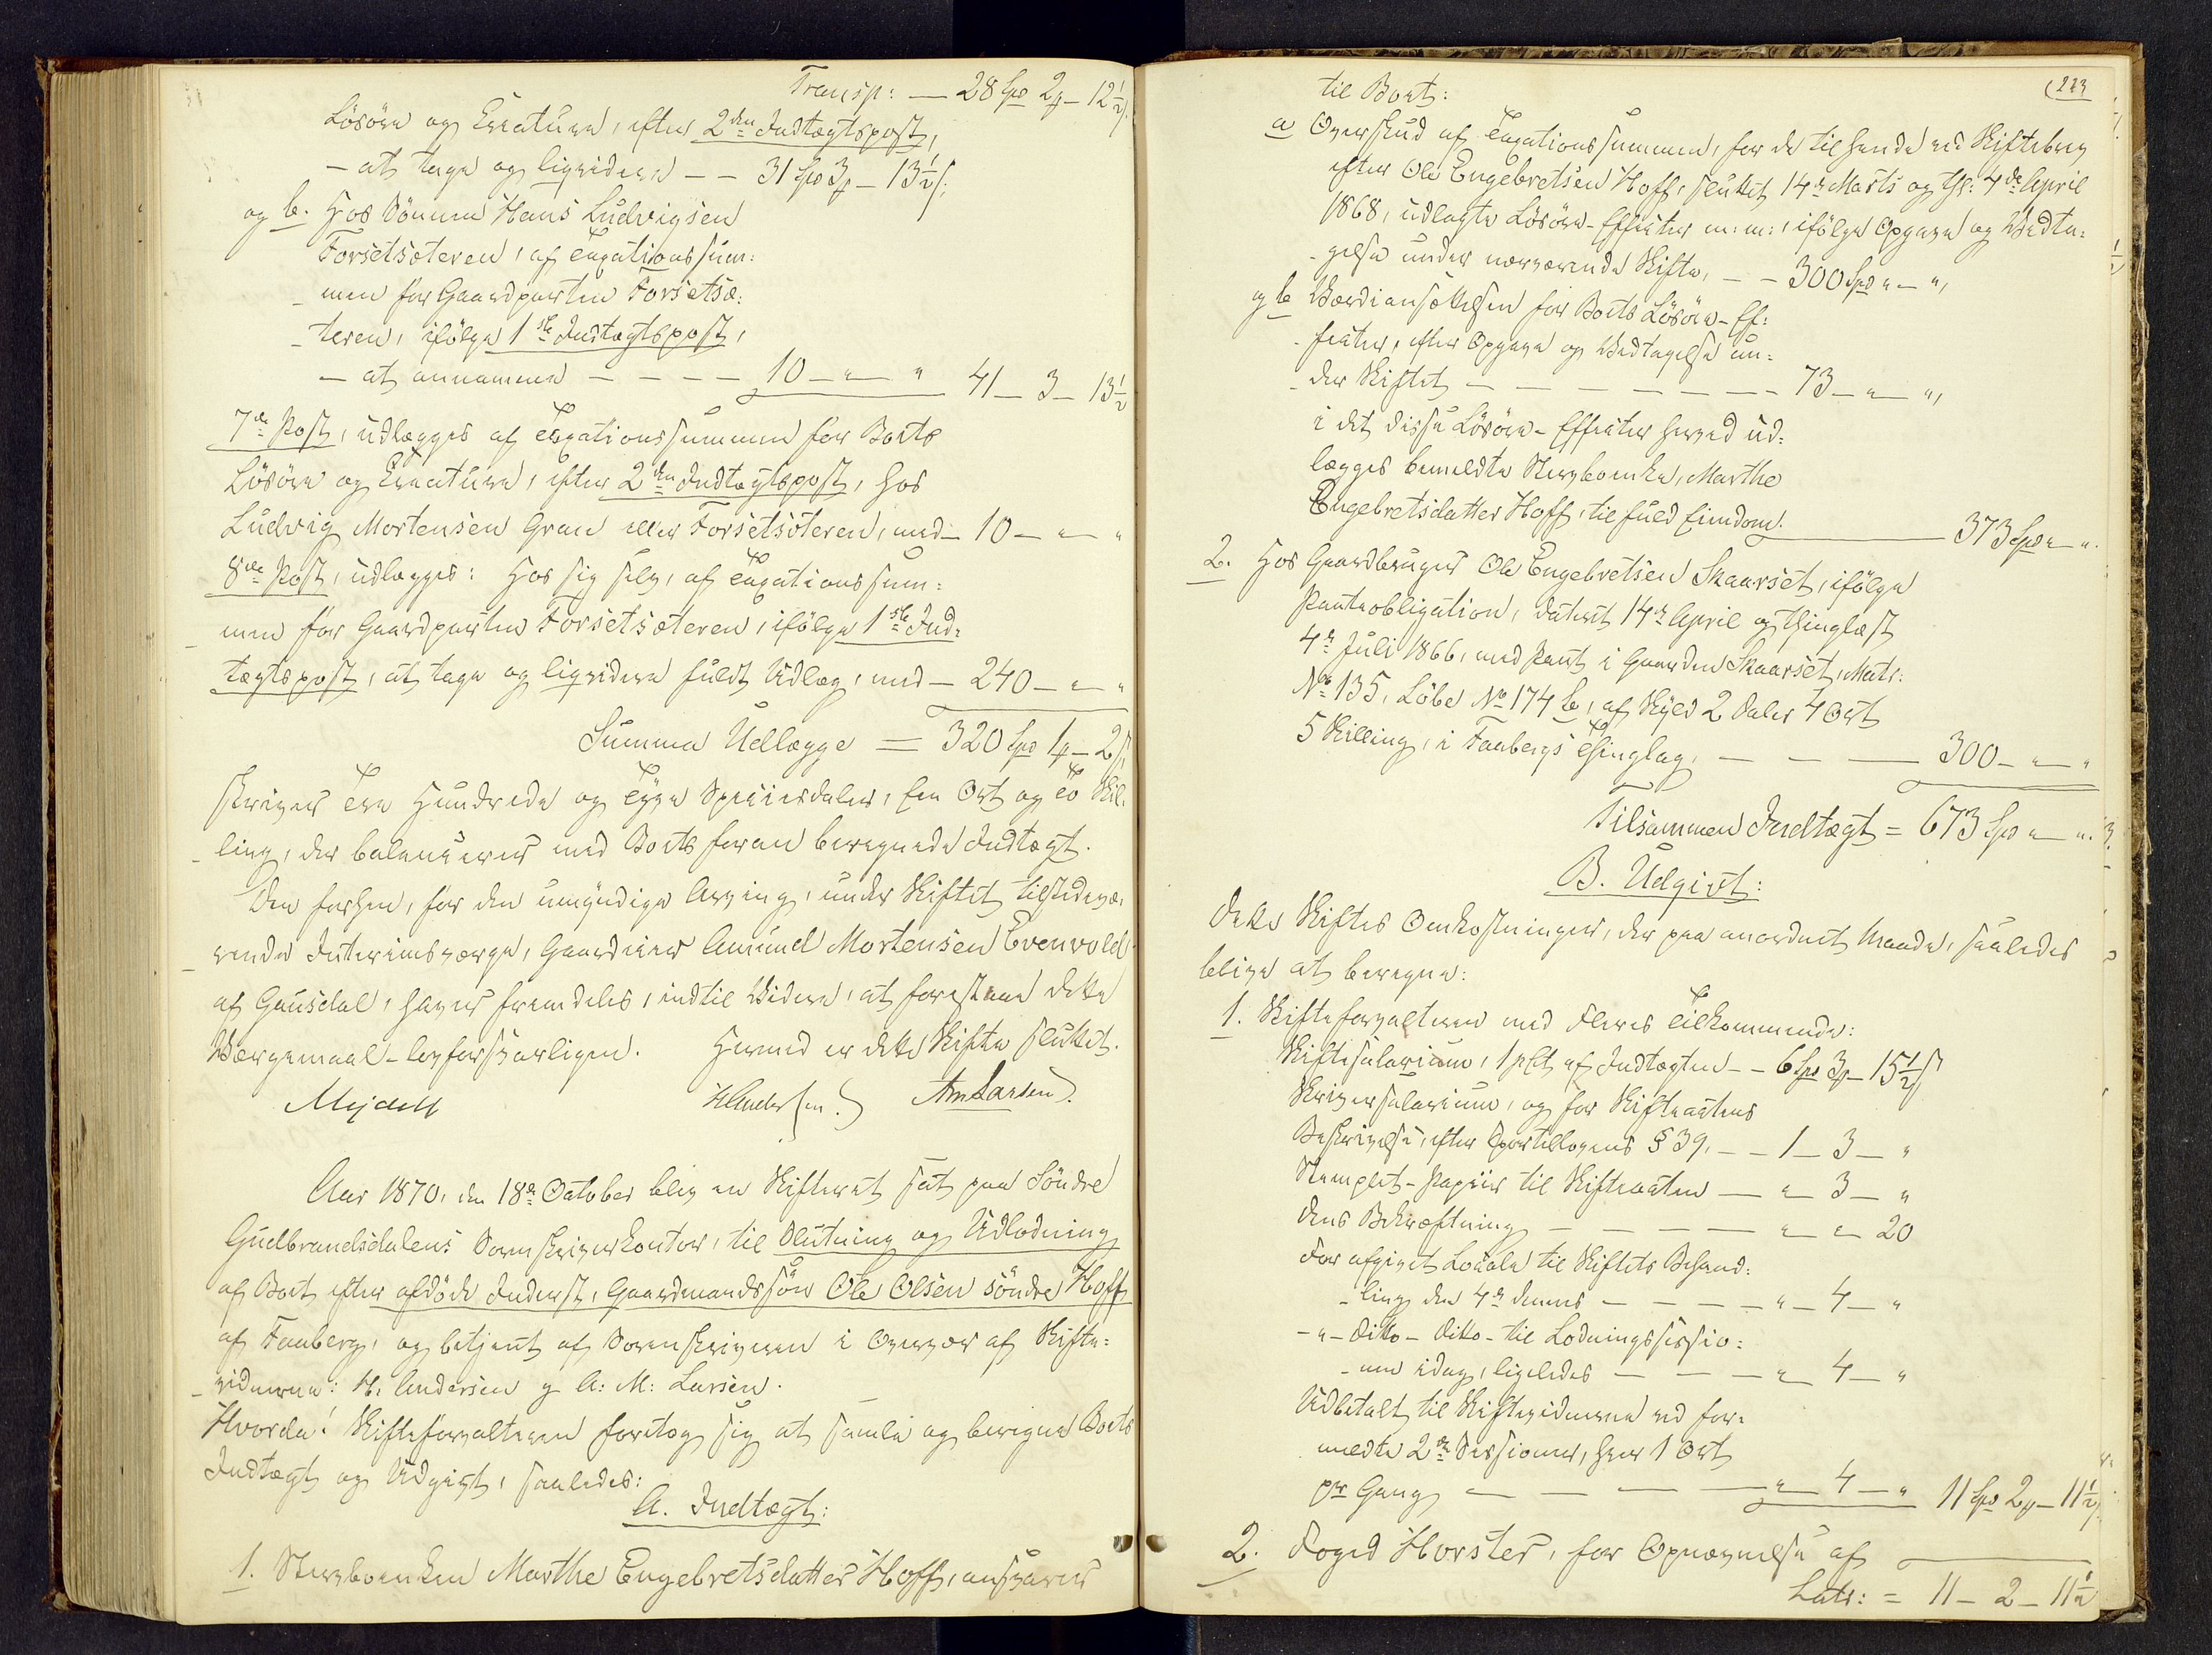 Transp: — 28 Spd 2 # — 12½ ß.
Lösöre og Creature, efter 2den Indtægtspost,
— at tage og liqvidere — — 31 Spd 3 # — 13½ ß,
og b. Hos Sönnen Hans Ludvigsen
Forsetsæteren, af Taxationssum=
- men for Gaardparten Forsetsæ=
- teren, ifölge 1ste Indtægtspost,
— at annamme — — — — 10 — " — " 41 — 3 — 13½
7de Post, udlægges af Taxationssummen for Boets
Lösöre og Creature, efter 2den Indtægtspost, hos
Ludvig Mortensen Gran eller Forsetsæteren, med — 10 — " — "
8de Post, udlægges: Hos sig selv, af Taxationssum=
- men for Gaardparten Forsetsæteren, ifölge 1ste Ind=
tægtspost, at tage og liqvidere fuldt Udlæg, med — 240 — " — "
Summa Udlægge = 320 Spd 1 # — 2 ß,
skriver Tre Hundrede og Tyve Speciesdaler, Een Ort og To Skil-
- ling, der balancerer med Boets foran beregnede Indtægt.
Den forhen, for den umyndige Arving, under Skiftet tilstedevæ-
- rende Interimsværge, Gaardeier Amund Mortensen Evenvold
af Gausdal, haver fremdeles, indtil Videre, at forestaae dette
Værgemaal lovforsvarligen. Hermed er dette Skifte sluttet.
Mejdell HAndersen. AmLarsen.
Aar 1870, den 18de October blev en Skifteret sat paa Söndre
Gudbrandsdalens Sorenskriverkontor, til Slutning og Udlodning
af Boet efter afdöde Inderst, Gaardmandssön Ole Olsen söndre Hoff
af Faaberg, og betjent af Sorenskriveren i Overvær af Skifte=
- vidnerne: H. Andersen og A: M: Larsen.
Hvorda! Skifteforvalteren foretog sig at samle og beregne Boets
Indtægt og Udgivt, saaledes:
A. Indtægt:
1. Stervboenken Marthe Engebretsdatter Hoff, ansvarer
(223
til Boet:
a Overskud af Taxationssummen, for de til hende ved Skiftebrev
efter Ole Engebretsen Hoff, sluttet 14de Marts og thl: 4de April
1868, udlagte Lösöre-Effecter m: m:, ifölge Opgave og Vedta=
- gelse under nærværende Skifte, — — 300 Spd " — ",
og b Værdiansættelsen for Boets Lösöre-Ef=
- fecter, efter Opgave og Vedtagelse un=
- der Skiftet — — — — — — — 73 — " — ",
i det disse Lösöre-Effecter herved ud=
lægges bemeldte Stervboenke, Marthe
Engebretsdatter Hoff, til fuld Eiendom. — 373 Spd " — ".
2. Hos Gaardbruger Ole Engebretsen Skaarset, ifölge
Panteobligation, dateret 14de April og thinglæst
4de Juli 1866, med Pant i Gaarden Skaarset, Matr:
No 135, Löbe No 174 b, af Skyld 2 Daler 4 Ort
5 Skilling, i Faabergs Thinglag, — — — 300 — " — "
Tilsammen Indtægt = 673 Spd " — ".
B. Udgivt:
Dette Skiftes Omkostninger, der paa anordnet Maade, saaledes
blive at beregne:
1. Skifteforvalteren med Fleres Tilkommende:
Skiftesalarium, 1 pCt af Indtægten — — 6 Spd 3 # — 15½ ß
Skriversalarium, og for Skifteactens
Beskrivelse, efter Sportellovens § 39, — — 1 — 3 — "
Stemplet-Papiir til Skifteacten — " — 3 — "
dens Bekræftning — — — — — " — " — 20
For afgivet Locale til Skiftets Behand=
- ling den 4de dennes — — — — " — 4 — "
- " - ditto - ditto - til Lodningssessio=
- nen idag, ligeledes — — — " — 4 — "
Udbetalt til Skiftevidnerne ved for-
meldte 2de Sessioner, hver 1 Ort
pr Gang — — — — " — 4 — " 11 Spd 2 # — 11½ ß
2. Foged Horster, for Opnævnelse af
Lats: = 11 — 2 — 11½